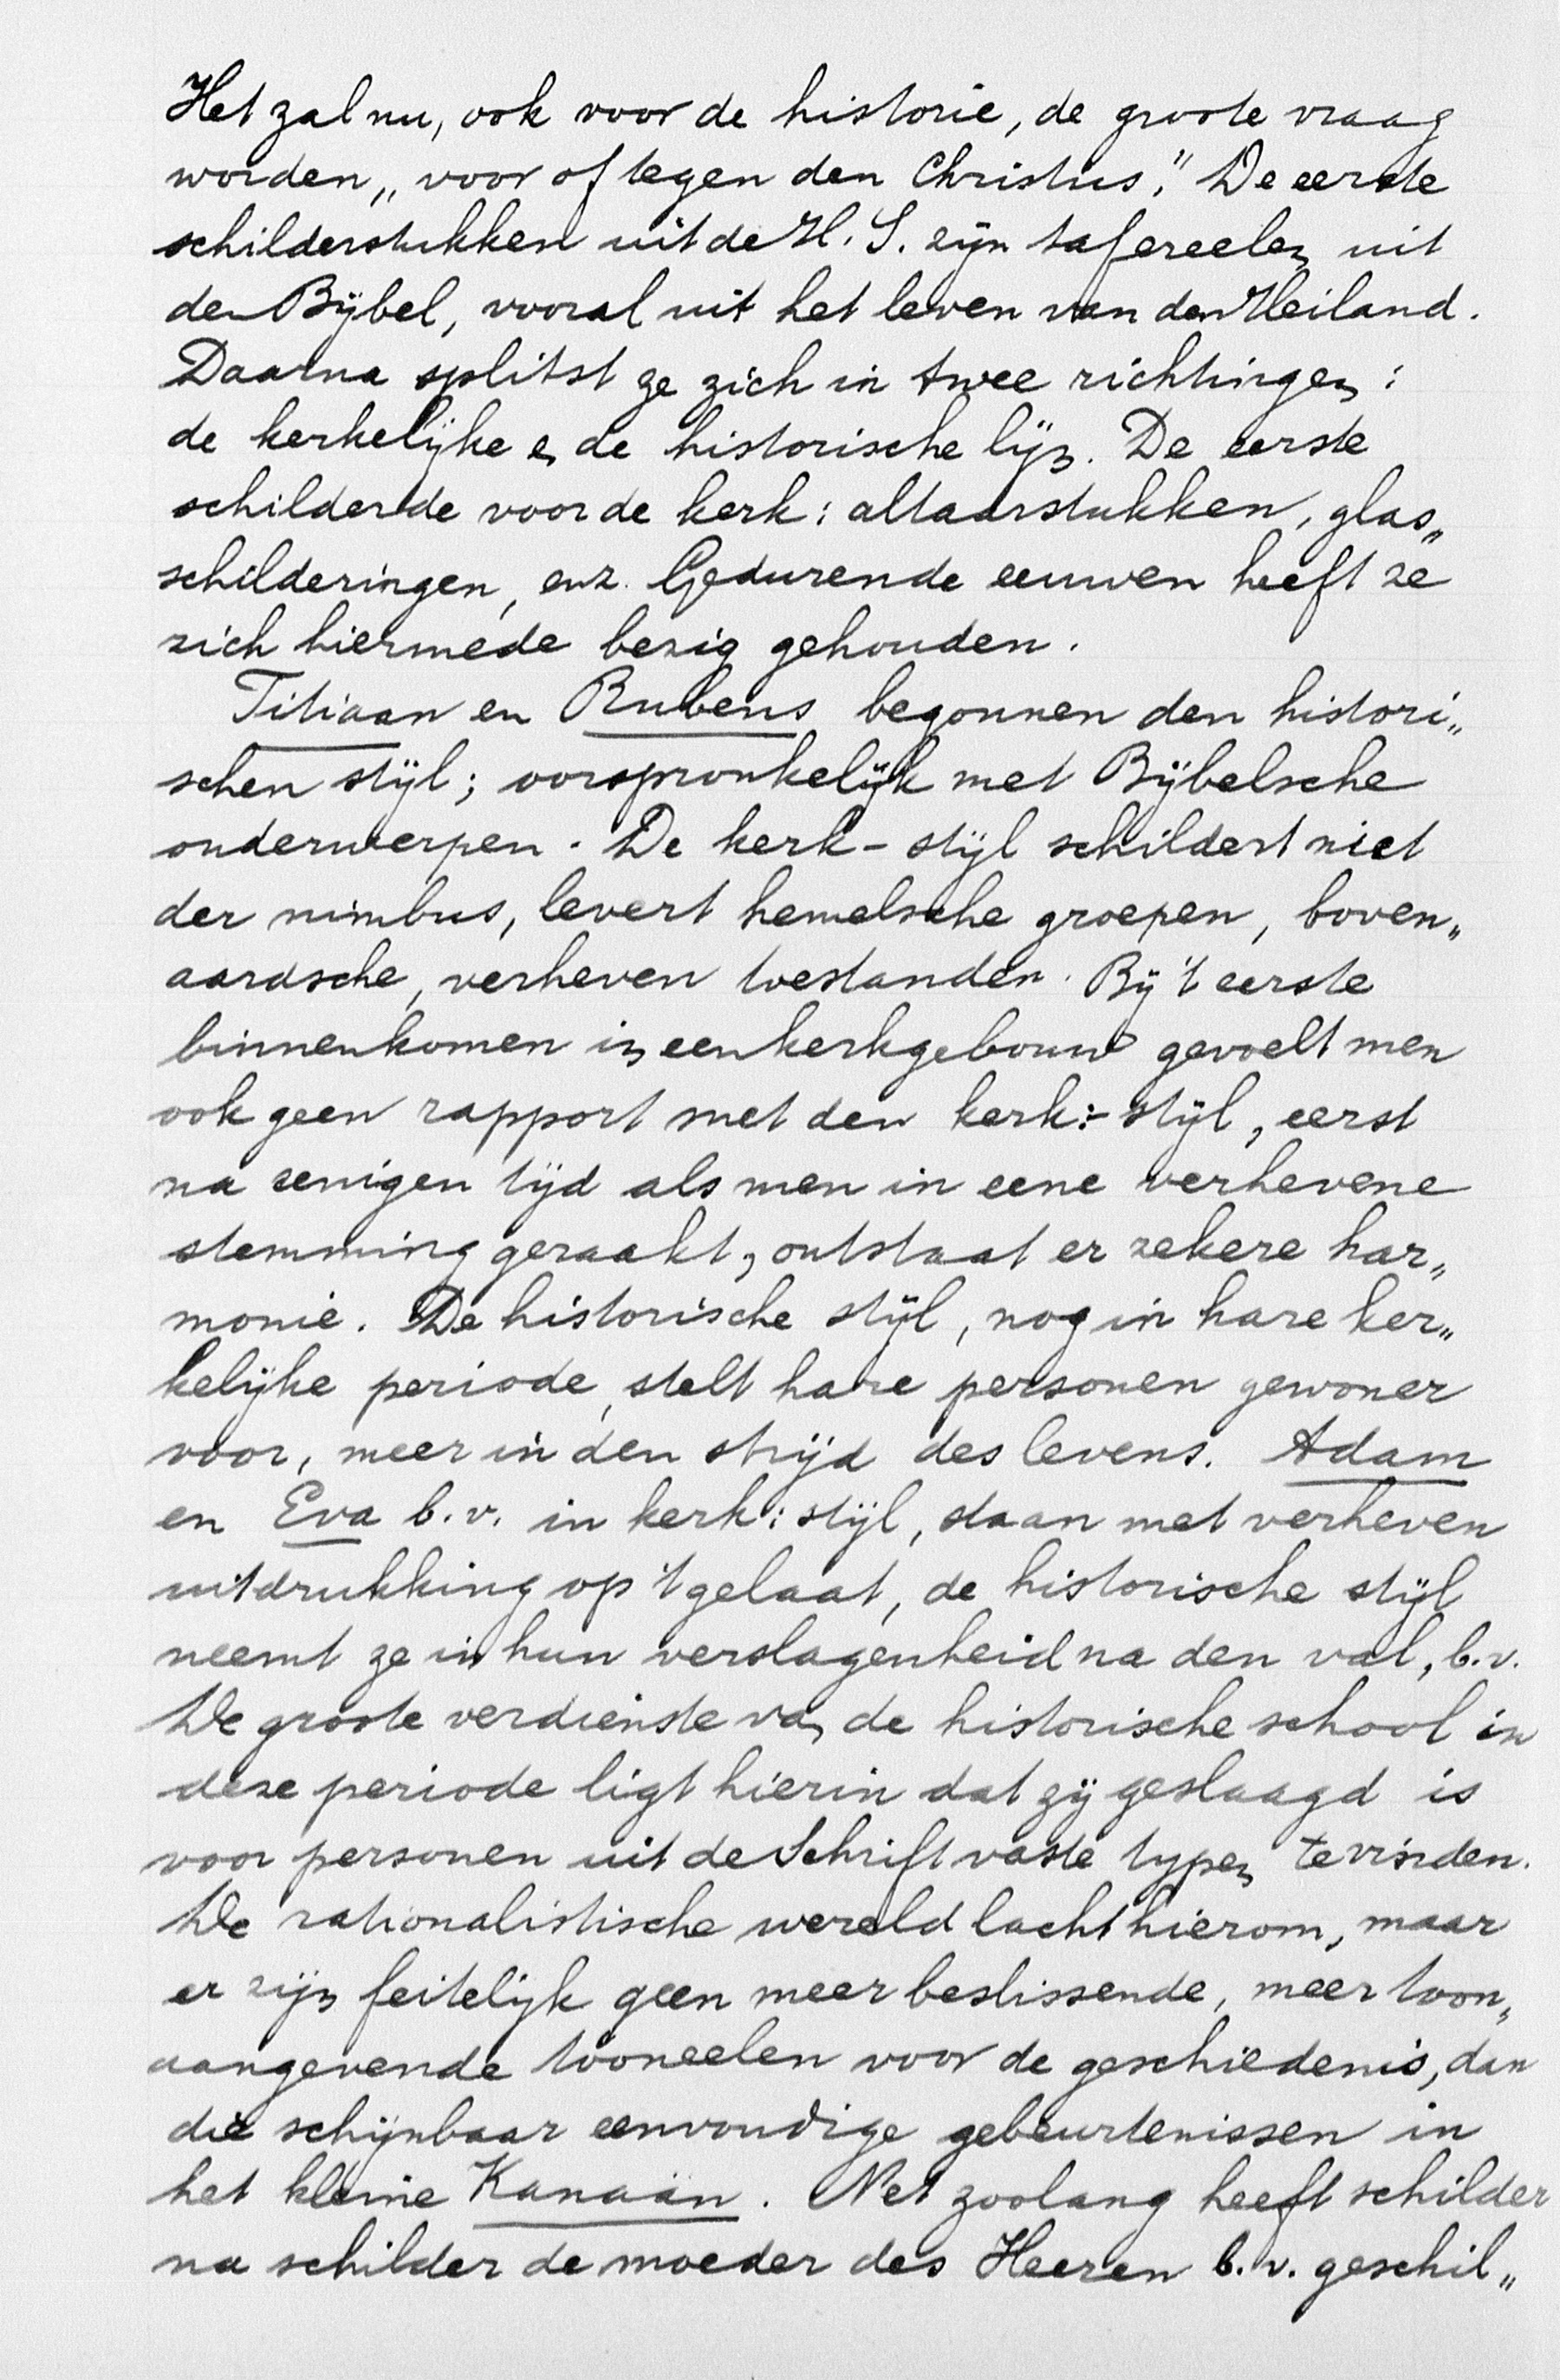 Het zal nu, ook voor de historie, de groote vraag
worden „voor of tegen den Christus." De eerste
schilderstukken uit de H. S. zijn tafereelen uit
den Bijbel, vooral uit het leven van den Heiland.
Daarna splitst ze zich in twee richtingen:
de kerkelijke en de historische lijn. De eerste
schilderde voor de kerk: altaarstukken, glas„
schilderingen, enz. Gedurende eeuwen heeft ze
zich hiermede bezig gehouden.
Titiaan en Rubens begonnen den histori„
schen stijl; oorspronkelijk met Bijbelsche
onderwerpen. De kerk-stijl schildert niet
der nimbus, levert hemelsche groepen, boven„
aardsche, verheven toestanden. Bij 't eerste
binnenkomen in een kerkgebouw gevoelt men
ook geen rapport met den kerk:-stijl, eerst
na eenigen tijd als men in eene verhevene
stemming geraakt, ontstaat er zekere har„
monie. De historische stijl, nog in hare ker„
kelijke periode, stelt hare personen gewoner
voor, meer in den strijd des levens. Adam
en Eva b.v. in kerk:stijl, staan met verheven
uitdrukking op 't gelaat, de historische stijl
neemt ze in hun verslagenheid na den val, b.v.
De groote verdienste van de historische school in
deze periode ligt hierin dat zij geslaagd is
voor personen uit de Schrift vaste typen te vinden.
De rationalistische wereld lacht hierom, maar
er zijn feitelijk geen meer beslissende, meer toon„
aangevende tooneelen voor de geschiedenis, dan
die schijnbaar eenvoudige gebeurtenissen in
het kleine Kanaän. Net zoolang heeft schilder
na schilder de moeder des Heeren b.v. geschil„